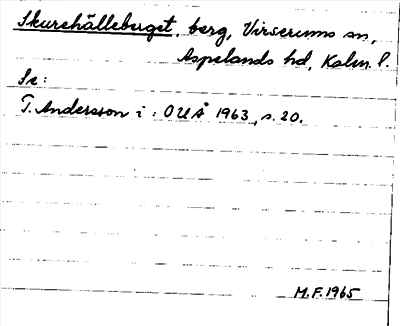 Skurehälleberget, berg, Virserums sn,
Aspelands hd, Kalm. l.
Se:
T. Andersson i: OUÅ 1963, s. 20.
M.F. 1965